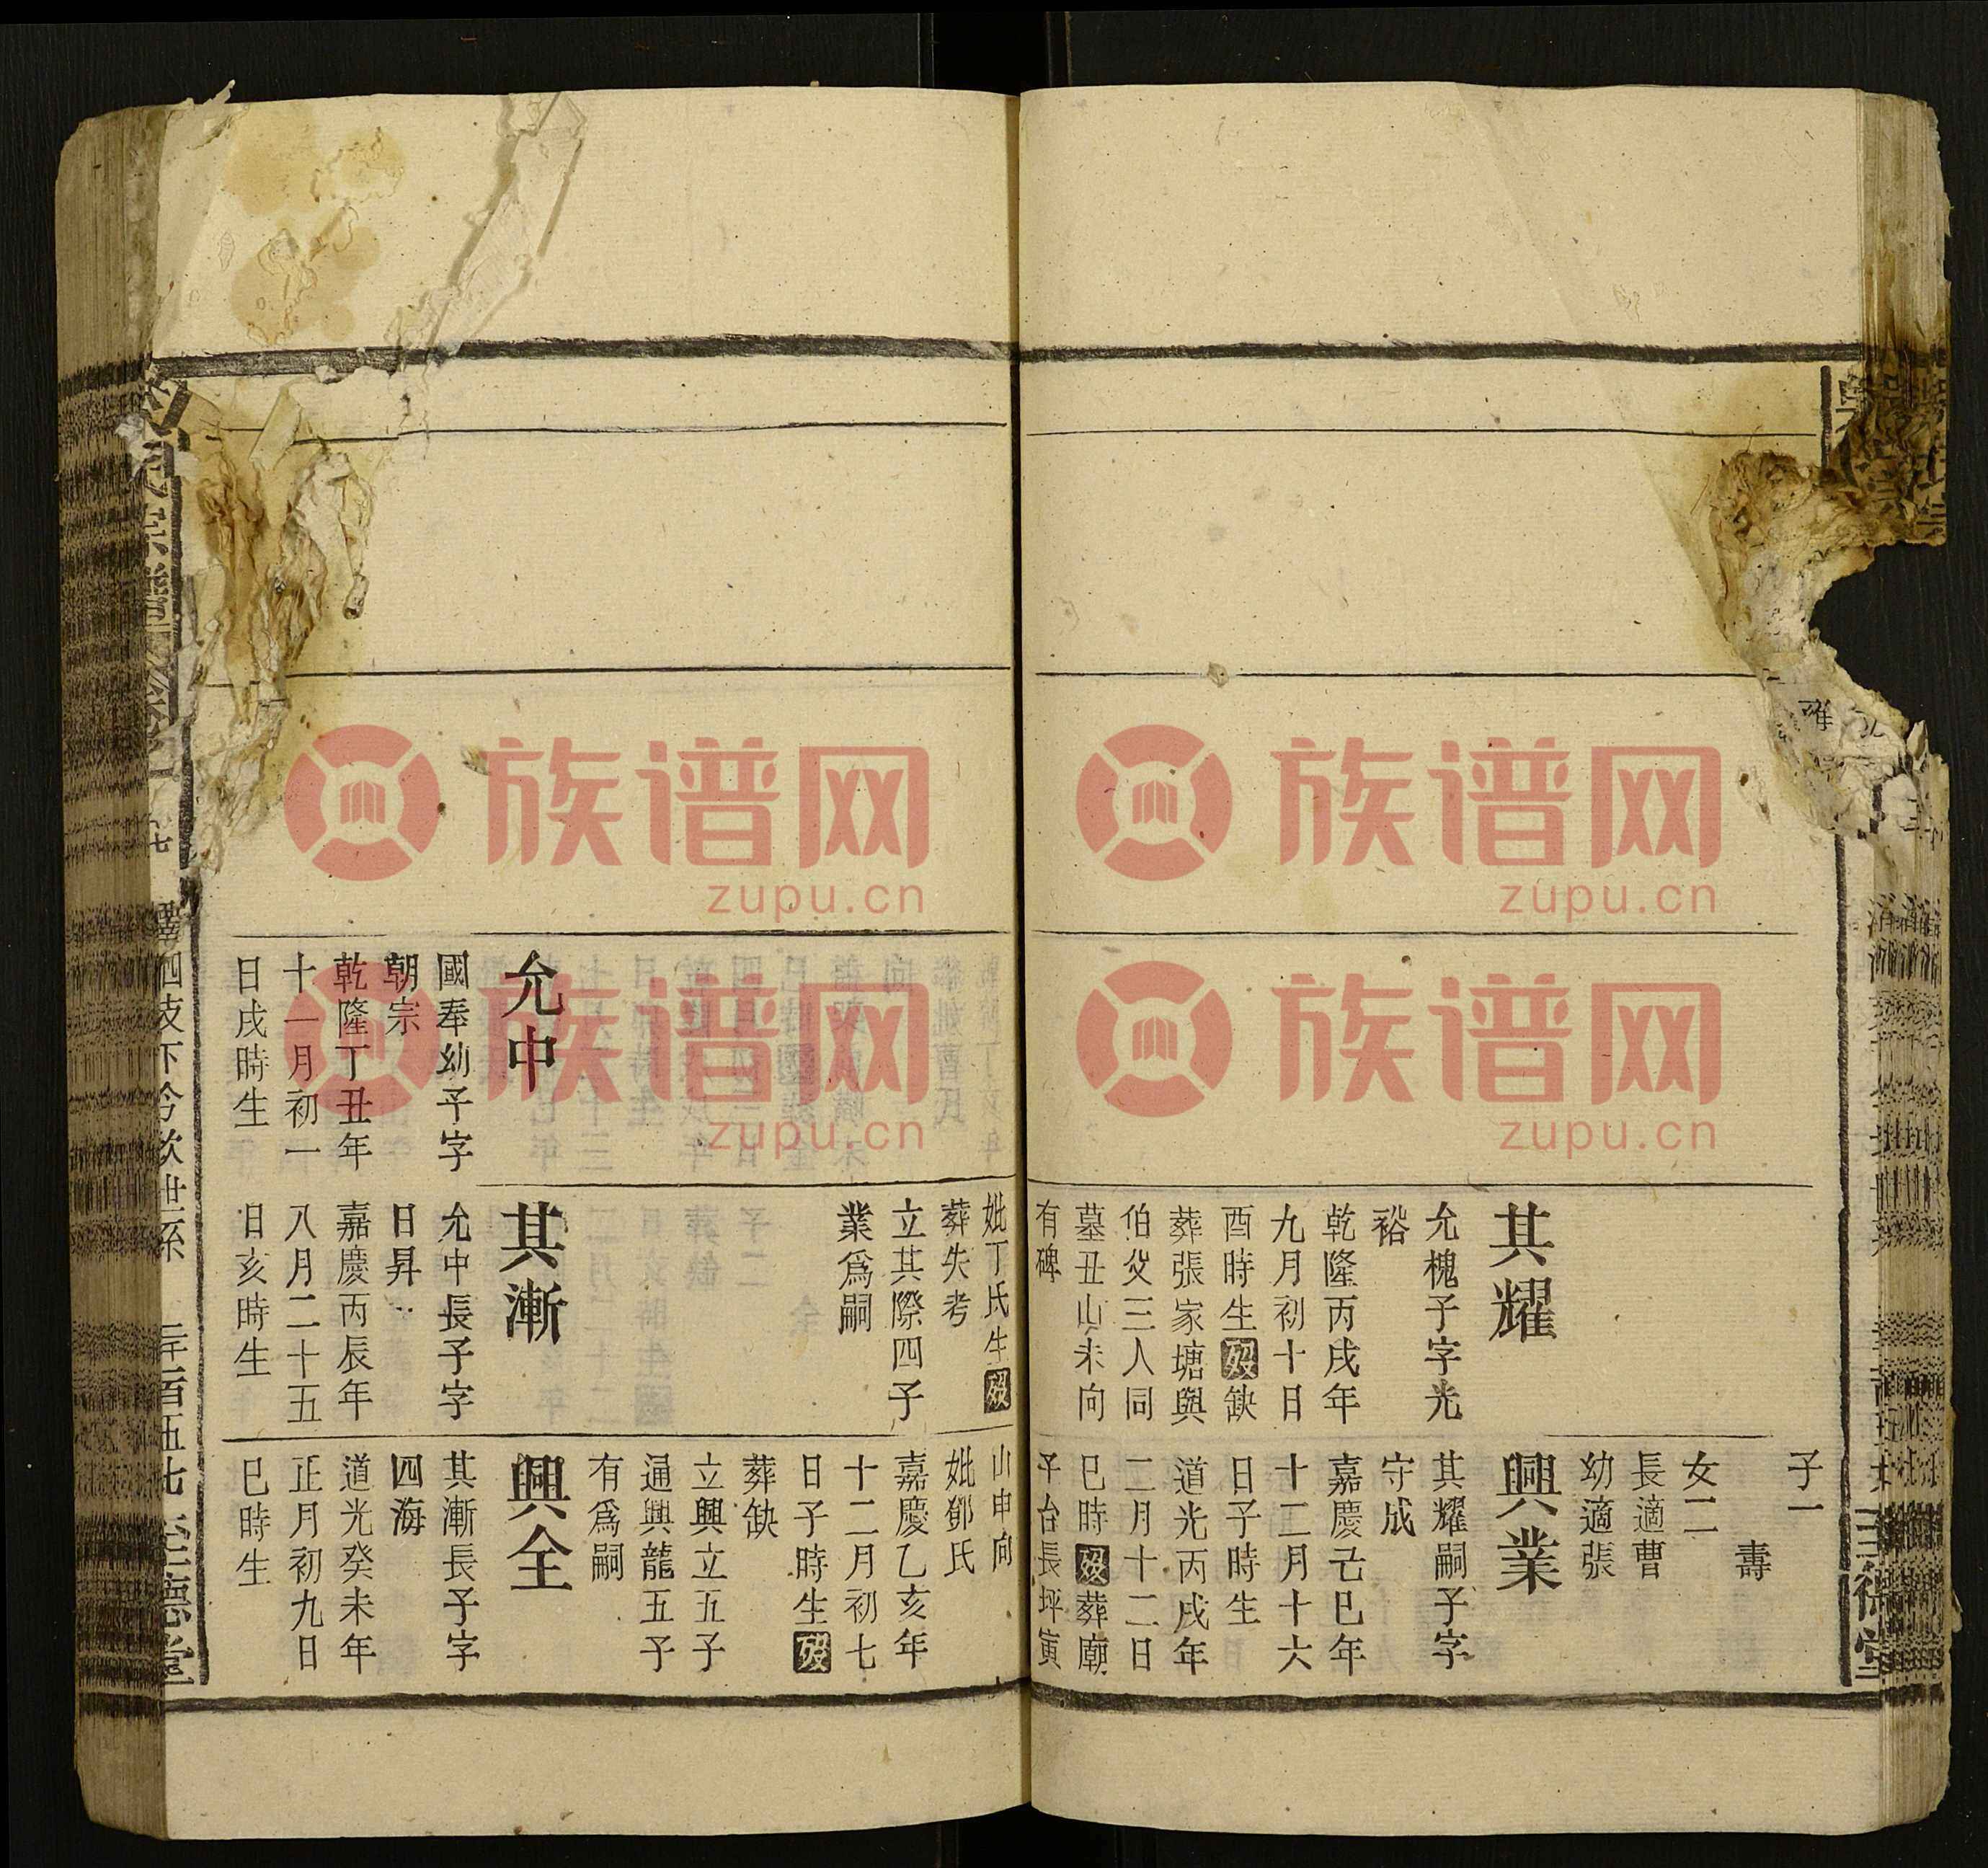 子一
壽
女二
長適曹
幼適張
其耀
允槐子字光
裕
乾隆丙戌年
九月初十日
酉時生歿缺
葬張家塘與
伯父三人同
墓丑山未向
有碑
興業
其耀嗣子字
守成
嘉慶己巳年
十二月十六
日子時生
道光丙戌年
二月十二日
巳時歿葬廟
子台長坪寅
妣丁氏生歿
葬失考
立其際四子
業爲嗣
山申向
妣鄧氏
嘉慶乙亥年
十二月初七
日子時生歿
葬缺
立興立五子
通興龍五子
有爲嗣
允中
國奉幼子字
朝宗
乾隆丁丑年
十一月初一
日戌時生
其漸
允中長子字
日昇
嘉慶丙辰年
八月二十五
日亥時生
興全
其漸長子字
四海
道光癸未年
正月初九日
巳時生
四支下令欽世系
至德堂
族谱网
zupu.cn
族谱网
zupu.cn
族谱网
zupu.cn
族谱网
zupu.cn